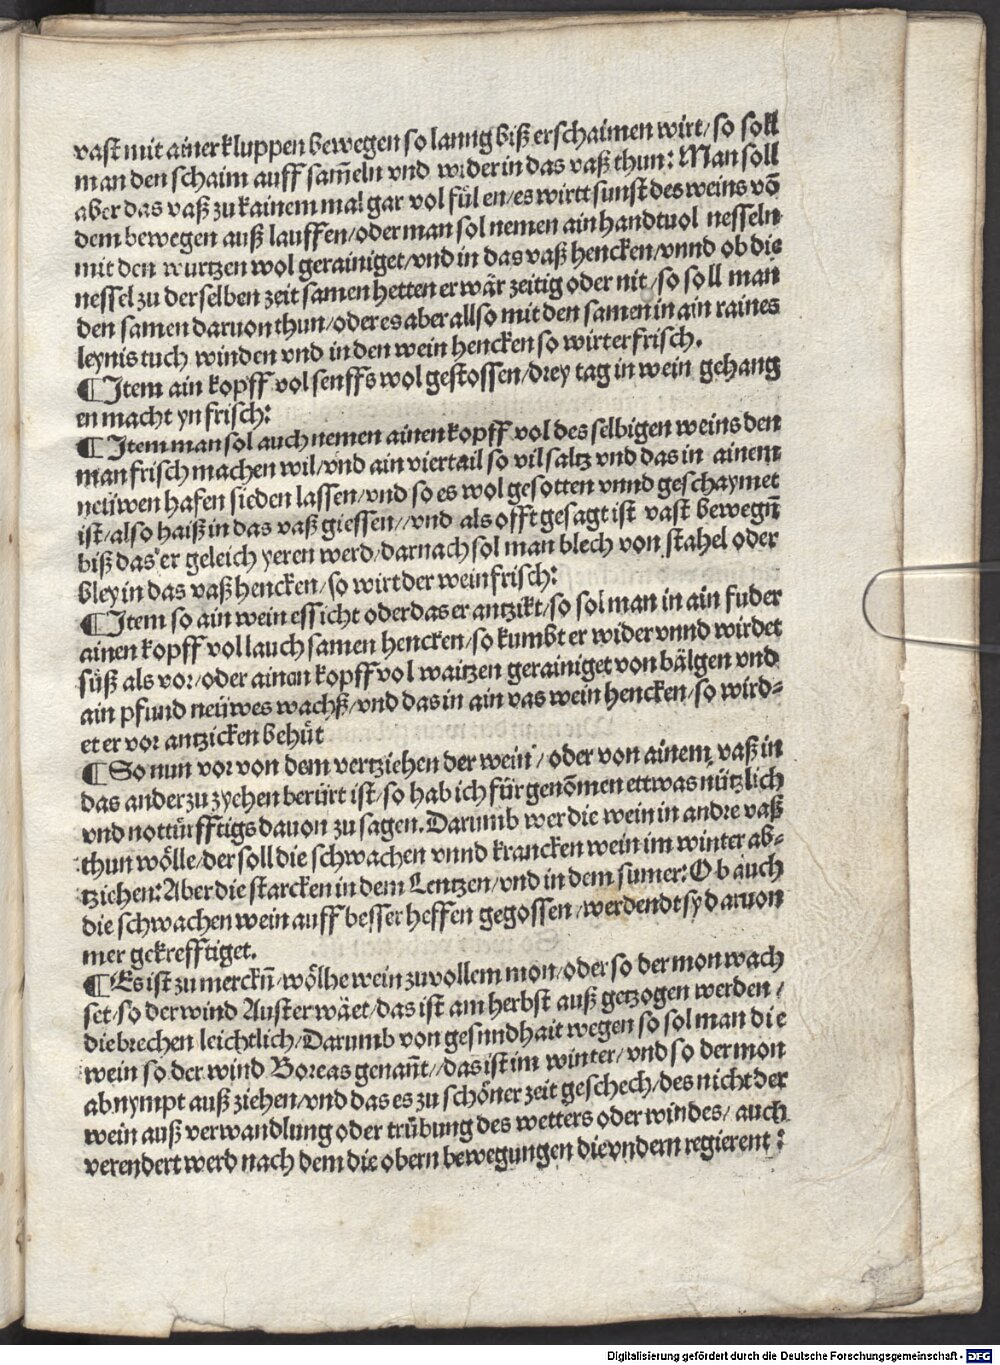 vast mit ainer kluppen bewegen so lanng biß er schaimen wirt/ so soll
man den schaim auff sam̃eln vnd wider in das vaß thun: Man soll
aber das vaß zu kainem mal gar vol füllen/ es wirtt sunst des weins võ
dem bewegen auß lauffen/ oder man sol nemen ain handtuol nesseln
mit den wurtzen wol gerainiget/ vnd in das vaß hencken/ vnnd ob die
nessel zu der selben zeit samen hetten er wär zeitig oder nit/ so soll man
den samen daruon thun/ oder es aber allso mit den samen in ain raines
leynis tuch winden vnd in den wein hencken so wirt er frisch.
¶ Item ain kopff vol senffs wol gestossen/ drey tag in wein gehang
en macht yn frisch:
¶ Item man sol auch nemen ainen kopff vol des selbigen weins den
man frisch machen wil/ vnd ain viertail so vil saltz vnd das in ainem
neüwen hafen sieden lassen/ vnd so es wol gesotten vnnd geschaymet
ist/ also haiß in das vaß giessen// vnd als offt gesagt ist vast bewegñ
biß das er geleich yeren werd/ darnach sol man blech von stahel oder
bley in das vaß hencken/ so wirt der wein frisch:
¶ Item so ain wein essicht oder das er antzikt/ so sol man in ain fuder
ainen kopff vol lauch samen hencken/ so kumbt er wider vnnd wirdet
süß als vor/ oder ainen kopff vol waitzen gerainiget von bälgen vnd
ain pfund neüwes wachß/ vnd das in ain vas wein hencken/ so wird⸗
et er vor antzicken behüt
¶ So nun vor von dem vertziehen der wein/ oder von ainem vaß in
das ander zu zyehen berürt ist/ so hab ich für genõmen ettwas nützlich
vnd nottürfftigs dauon zu sagen. Darumb wer die wein in andre vaß
thun wölle/ der soll die schwachen vnnd krancken wein im winter ab⸗
tziehen: Aber die starcken in dem Lentzen/ vnd in dem sumer: Ob auch
die schwachen wein auff besser heffen gegossen/ werdendt sy daruon
mer gekrefftiget.
¶ Es ist zu merckñ/ wölhe wein zu vollem mon/ oder so der mon wach
set/ so der wind Auster wäet/ das ist am herbst auß getzogen werden/
die brechen leichtlich/ Darumb von gesundhait wegen so sol man die
wein so der wind Boreas genañt// das ist im winter/ vnd so der mon
ab nympt auß ziehen/ vnd das es zu schöner zeit geschech/ des nicht der
wein auß verwandlung oder trübung des wetters oder windes/ auch
verendert werd nach dem die obern bewegungen die vndern regierent:
Digitalisierung gefördert durch die Deutsche Forschungsgemeinschaft - DFG